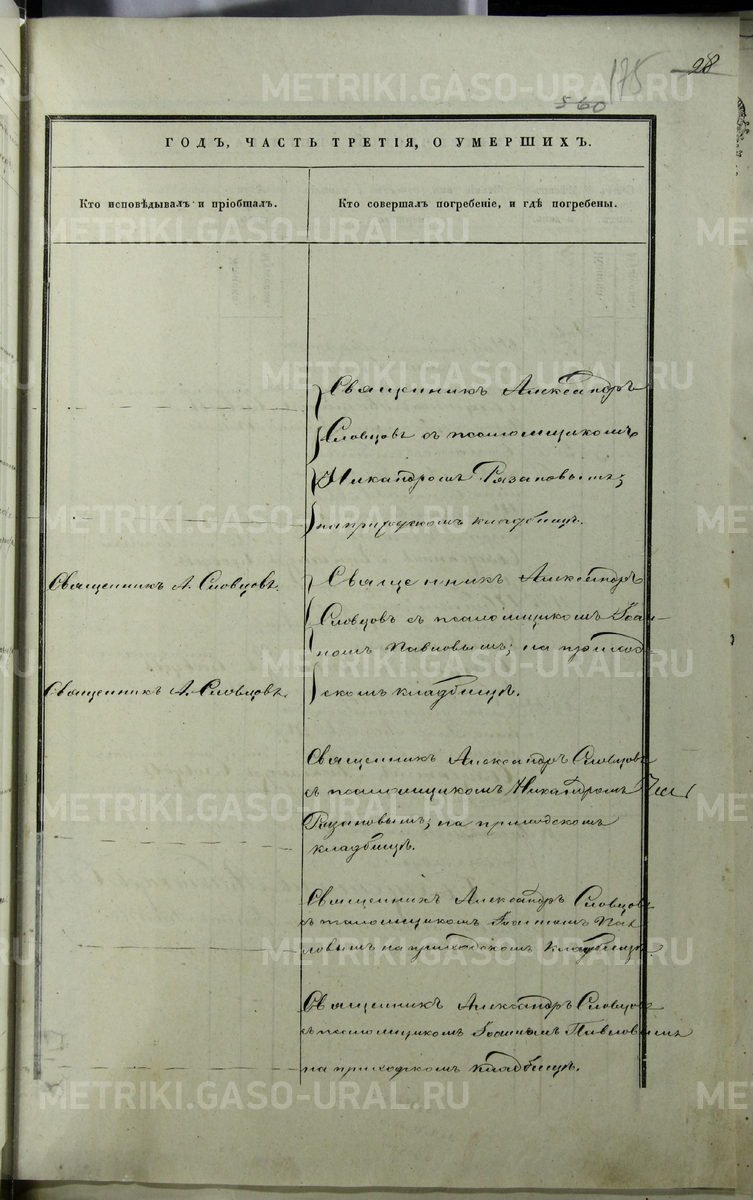 28
175
560
ГОДЪ, ЧАСТЬ ТРЕТІЯ, О УМЕРШИХЪ.
Кто исповѣдывалъ и пріобщалъ.
Кто совершалъ погребеніе, и гдѣ погребены.
Священникъ Александръ
Словцовъ съ псаломщикомъ
Никандромъ Рязановымъ;
на приходскомъ кладбищѣ.
Священникъ А. Словцовъ.
Священникъ Александръ
Словцовъ съ псаломщикомъ Іоан-
номъ Павловымъ; на приход-
Священникъ А. Словцовъ.
скомъ кладбищѣ.
Священникъ Александръ Словцовъ
съ псаломщикомъ Никандромъ
Рязановымъ; на приходскомъ
кладбищѣ.
Священникъ Александръ Словцовъ
съ псаломщикомъ Іоанномъ Пав
ловымъ на приходскомъ кладбищѣ.
Священникъ Александръ Словцовъ
съ псаломщикомъ Іоанномъ Павловымъ
на приходскомъ кладбищѣ.
METRIKI.GASO-URAL.RU